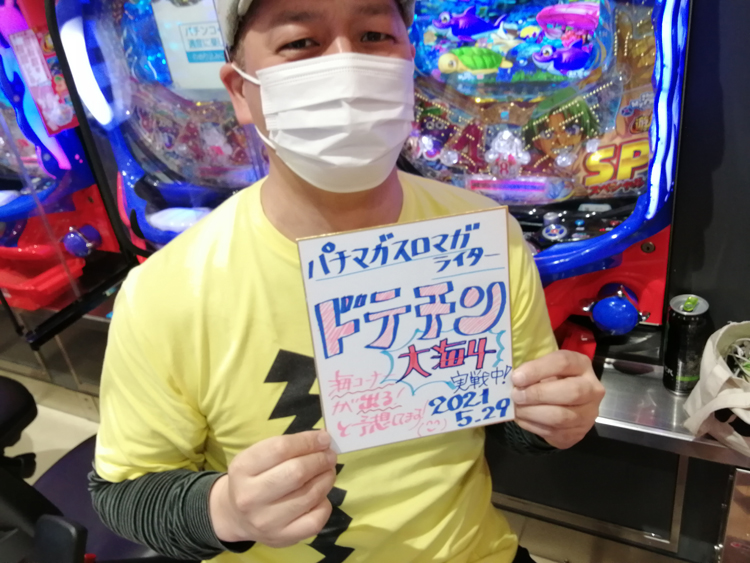 パチマガスロマガ
ライター
ドテチン
大海4
実戦中!
海コーナー
が出る!
と予想してます!
2021
5.29
SP